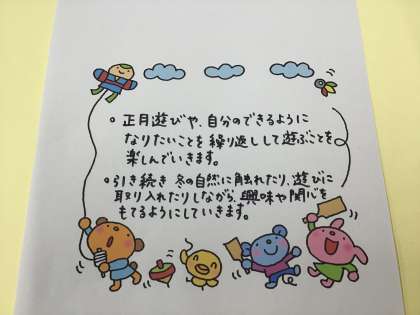 。正月遊びや、自分のできるように
なりたいことを繰り返しして遊ぶことを
楽しんでいきます。
。引き続き 冬の自然に触れたり、遊びに
取り入れたりしながら、興味や関心を
もてるようにしていきます。